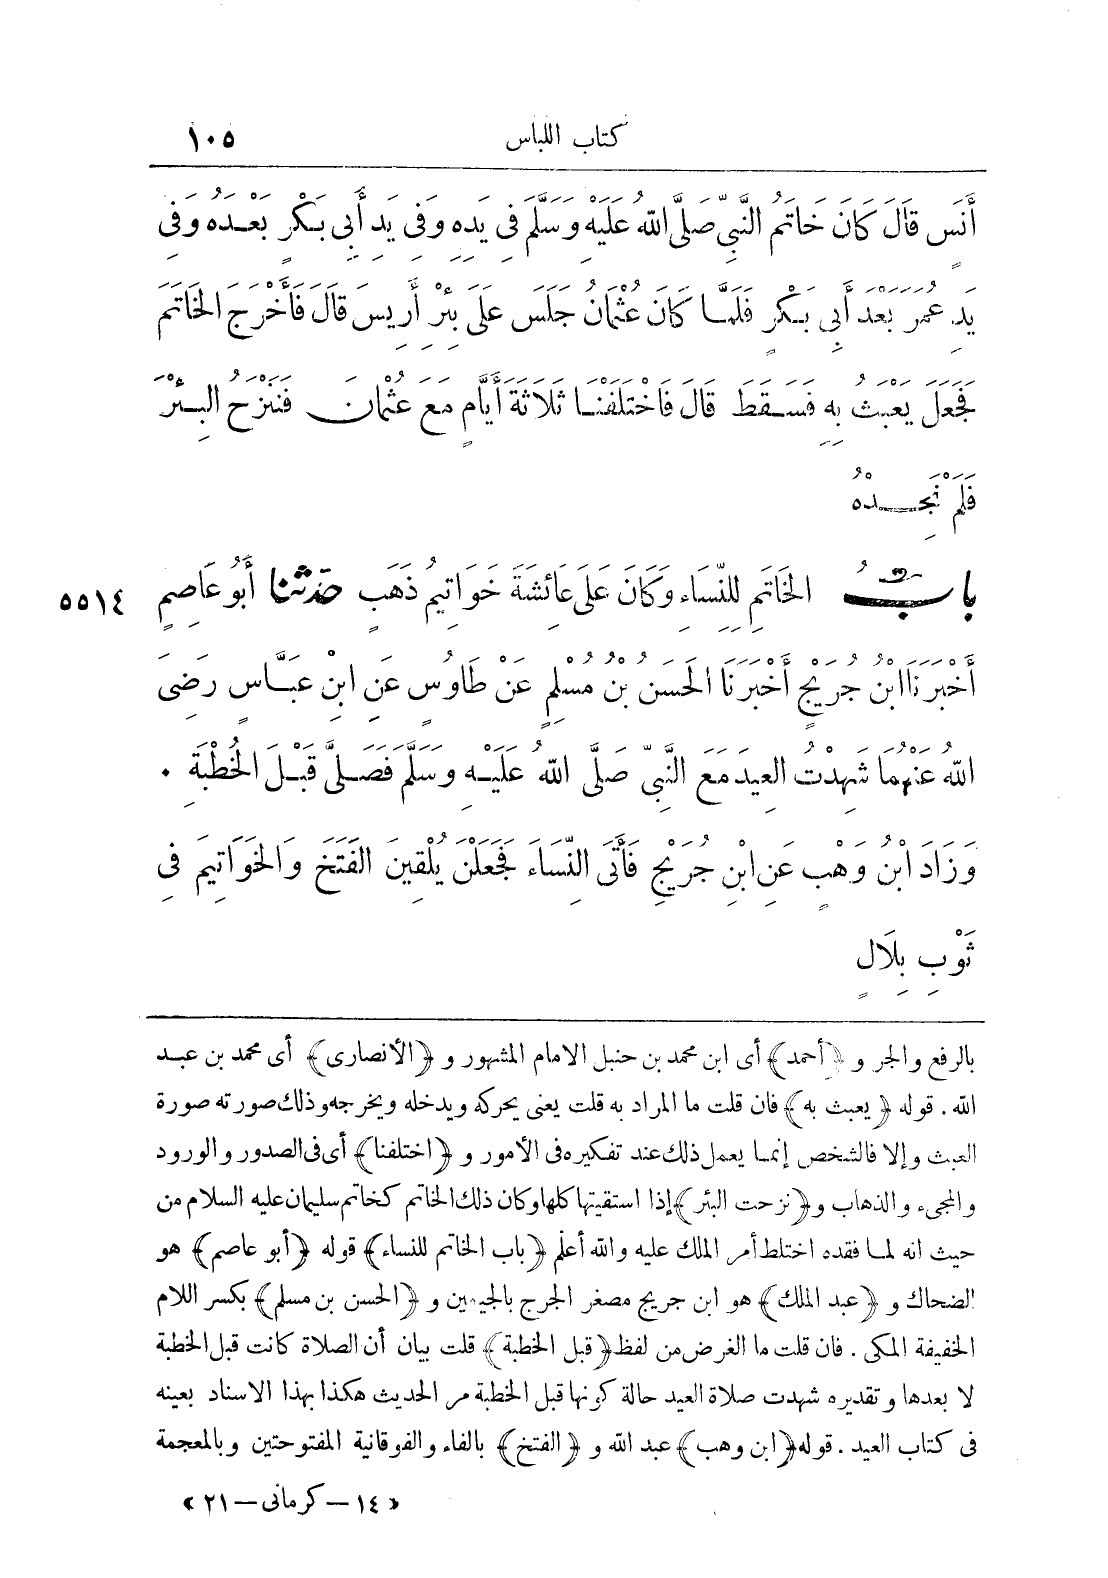 كتاب اللباس ١٠٥
أَنَسٍ قَالَ كَانَ خَاتَمُ النَّبِيِّ صَلَّى اللهُ عَلَيْهِ وَسَلَّمَ فِي يَدِهِ وَفِي يَدِ أَبِي بَكْرٍ بَعْدَهُ وَفِي
يَدِ عُمَرَ بَعْدَ أَبِي بَكْرٍ فَلَمَّا كَانَ عُثْمَانُ جَلَسَ عَلَى بِئْرِ أَرِيسَ قَالَ فَأَخْرَجَ الخَاتَمَ
فَجَعَلَ يَعْبَثُ بِهِ فَسَقَطَ قَالَ فَاخْتَلَفْنَا ثَلَاثَةَ أَيَّامٍ مَعَ عُثْمَانَ فَنَنْزَحُ البِئْرَ
فَلَمْ نَجِدْهُ
بابُ الخَاتَمِ لِلنِّسَاءِ وَكَانَ عَلَى عَائِشَةَ خَوَاتِيمُ ذَهَبٍ حدثنا أَبُو عَاصِمٍ ٥٥١٤
أَخْبَرَنَا ابْنُ جُرَيْجٍ أَخْبَرَنَا الحَسَنُ بْنُ مُسْلِمٍ عَنْ طَاوُسٍ عَنِ ابْنِ عَبَّاسٍ رَضِيَ
اللهُ عَنْهُمَا شَهِدْتُ العِيدَ مَعَ النَّبِيِّ صَلَّى اللهُ عَلَيْهِ وَسَلَّمَ فَصَلَّى قَبْلَ الخُطْبَةِ .
وَزَادَ ابْنُ وَهْبٍ عَنِ ابْنِ جُرَيْجٍ فَأَتَى النِّسَاءَ فَجَعَلْنَ يُلْقِينَ الفَتَخَ وَالخَوَاتِيمَ فِي
ثَوْبِ بِلَالٍ
بالرفع والجر و ﴿أحمد﴾ أى ابن محمد بن حنبل الامام المشهور و ﴿الأنصارى﴾ أى محمد بن عبد
الله . قوله ﴿يعبث به﴾ فان قلت ما المراد به قلت يعنى يحركه ويدخله ويخرجه وذلك صورته صورة
العبث وإلا فالشخص إنما يعمل ذلك عند تفكيره فى الأمور و ﴿اختلفنا﴾ أى فى الصدور والورود
والمجىء والذهاب و ﴿نزحت البئر﴾ إذا استقيتها كلها وكان ذلك الخاتم كخاتم سليمان عليه السلام من
حيث انه لما فقده اختلط أمر الملك عليه والله أعلم ﴿باب الخاتم للنساء﴾ قوله ﴿أبو عاصم﴾ هو
الضحاك و ﴿عبد الملك﴾ هو ابن جريج مصغر الجرج بالجيمين و ﴿الحسن بن مسلم﴾ بكسر اللام
الخفيفة المكى . فان قلت ما الغرض من لفظ ﴿قبل الخطبة﴾ قلت بيان أن الصلاة كانت قبل الخطبة
لا بعدها وتقديره شهدت صلاة العيد حالة كونها قبل الخطبة مر الحديث هكذا بهذا الاسناد بعينه
فى كتاب العيد . قوله ﴿ابن وهب﴾ عبد الله و ﴿الفتخ﴾ بالفاء والفوقانية المفتوحتين وبالمعجمة
« ١٤ — كرمانى — ٢١ »